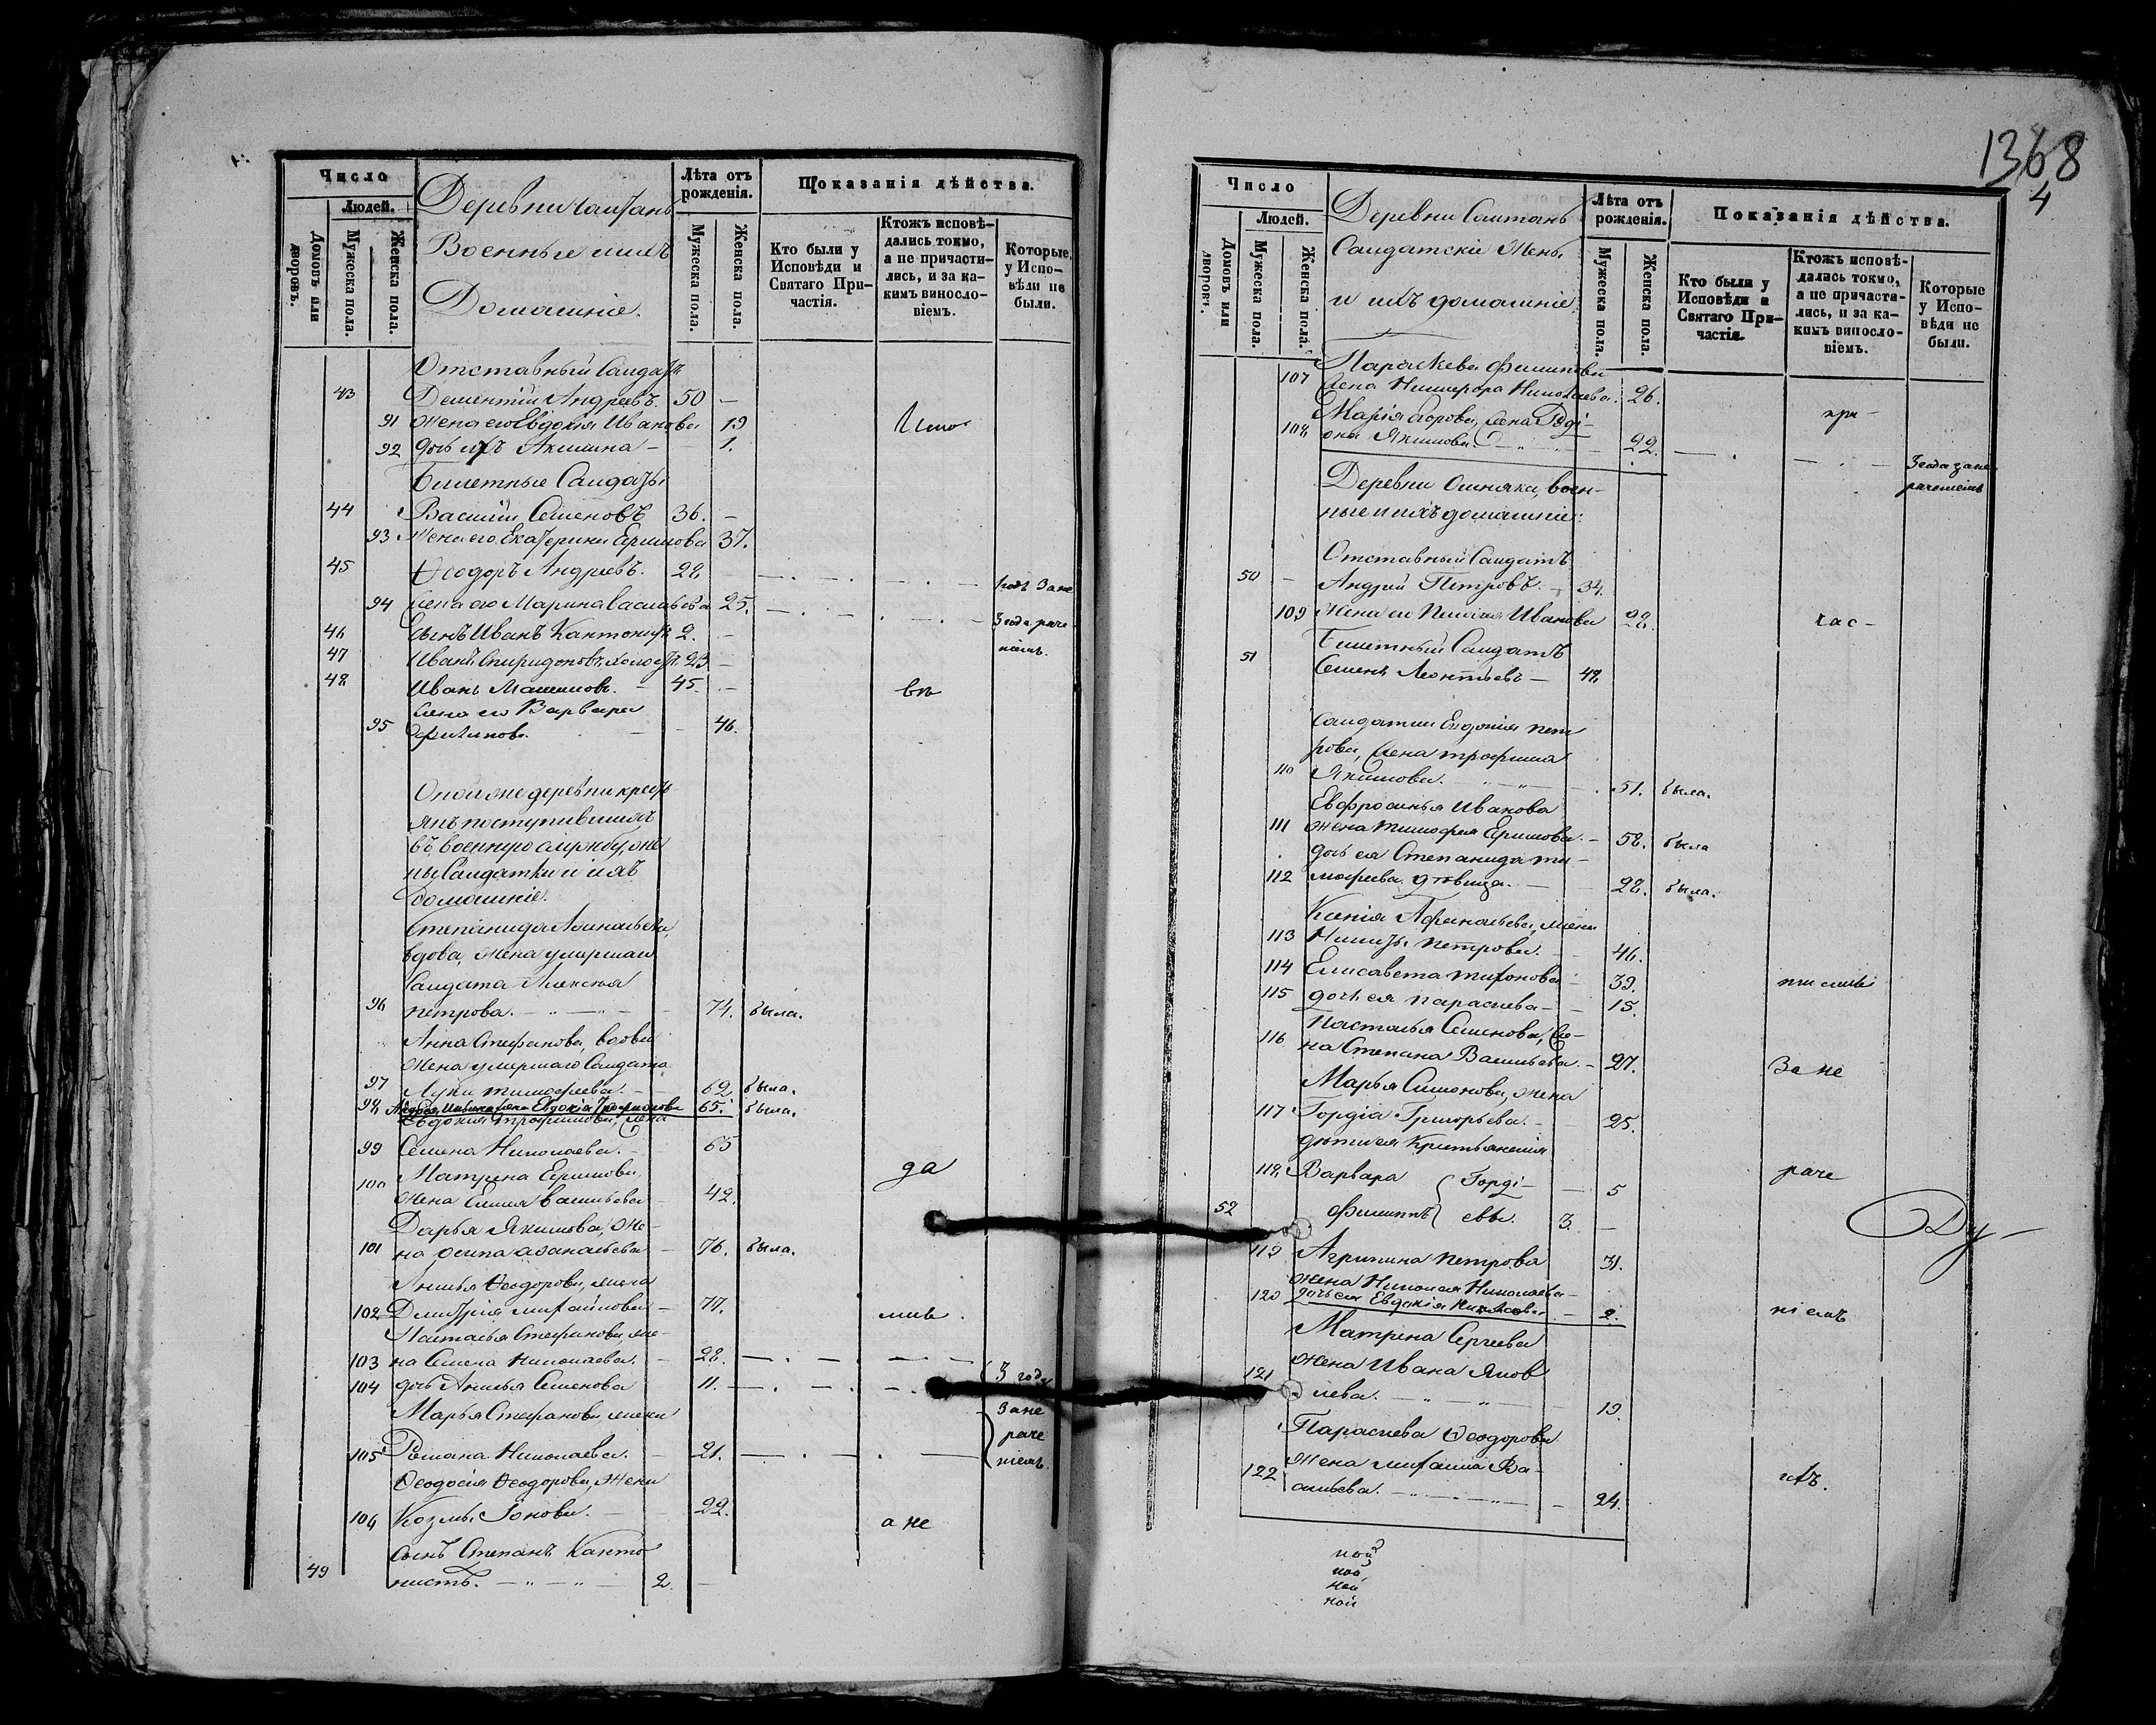 Число
Людей.
Домовъ или дворовъ.
Мужеска пола.
Женска пола.
Деревни
Военные ихъ
Домашніе.
Лѣта отъ рожденія.
Мужеска пола.
Женска пола.
Показанія дѣйства.
Кто были у Исповѣди и Святаго Причастія.
Ктожъ исповѣдались токмо, а не причастились, и за какимъ винословіемъ.
Которые у Исповѣди не были.
Отставный Салдатъ
43 Дементій Андреевъ. 50 –
91 Жена его Евдокія Иванова 19
92 дочь ихъ Акилина – 1.
Билетные Салдаты
44 Василій Семеновъ 36. –
93 Жена его Екатерина Ермилова 37.
45 Ѳеодоръ Андреевъ. 28 годъ за не
94 Жена его Марина Васильева 25. 3 года раче
46 Сынъ Иванъ Кантонистъ 2. – ніемъ.
47 Иванъ Спиридоновъ холостъ 23 –
48 Иванъ Максимовъ. – 45. –
Жена его Варвара
95 46.
Оной же деревни кресть
янъ поступившихъ
въ военную службу же
ны Салдатки и ихъ
домашніе.
Степанида Аѳанасьева,
вдова, жена умершаго
Салдата Алексея
96 петрова. 74. была.
Анна Стефанова, вдова
жена умершаго Салдата
97 Луки тимофеева. – 62 была.
98 65. была.
Евдокия трофимова, жена
99 Семена Николаева. – 65
Матрена Ермилова,
100 жена Емилiя васильева 42. да
Дарья Якимова, же-
101 на осипа аѳанасьева – 76. была.
Анисья Ѳеодорова, жена
102 Димитрія михайлова – 77. лив
Наталья Стефанова же-
103 на Семена николаева. – 28.
104 дочь Анисья Семенова 11. 3 года
Марья Стефанова, жена за не
105 Романа Николаева. – 21. раче
ніемъ.
Ѳеодосія Ѳеодорова, Жена
106 Козмы Іонова. – 22. а не
сынъ Степанъ Канто
49 нистъ. 2. –
1368
4
Число
Людей.
Домовъ или дворовъ.
Мужеска пола.
Женска пола.
Деревни
Салдатскіе Жены
и ихъ домашніе.
Лѣта отъ рожденія.
Мужеска пола.
Женска пола.
Показанія дѣйства.
Кто были у Исповѣди и Святаго Причастія.
Ктожъ исповѣдались токмо, а не причастились, и за какимъ винословіемъ.
Которые у Исповѣди не были.
Параскева филипова
107 Жена Никифора Николаева. 26. при–
Марія Егорова, жена Роді–
108 она Якимова. 22. 3 года за не
раченiемъ
Деревни Ошняка, воен–
ные и ихъ домашніе:
Отставный Салдатъ
50 – Андрей Петровъ. – 34.
109 Жена его Пелагея Иванова 28. час–
Билетный Салдатъ
51 Семенъ Леонтьевъ – 48
Салдатки Евдокія пет
рова, Жена трофима
110 Якимова. 51. была.
Евфросинья Иванова
111 жена тимофея Ермилова. – 58. была
дочь ея Степанида ти–
112 мофеева дѣвица. – 28. была.
Ксенія Аѳанасьева, жена
113 Никиты петрова. – 46.
114 Елисавета тихонова – 39. тилив
115 дочь ея параскева – 15.
Настасья Семенова, Же–
116 на Степана Васильева. – 27. За не
Марья Симонова, жена
117 Гордія Григорьева. – 25.
дѣти ея Крестьянскія
118 Варвара Горді– 5 раче
52 филиппъ евы. 3. – Ду–
119 Агрипина петрова 31.
жена Николая Николаева–
120 дочь ея Евдокія Николаева – 2. ніемъ
Матрена Сергеева
жена Ивана Яков
121 лева. 19.
Параскева Ѳеодорова
жена михаила Ва–
122 сильева. 24. ихъ.
ной
ной
ной
ной